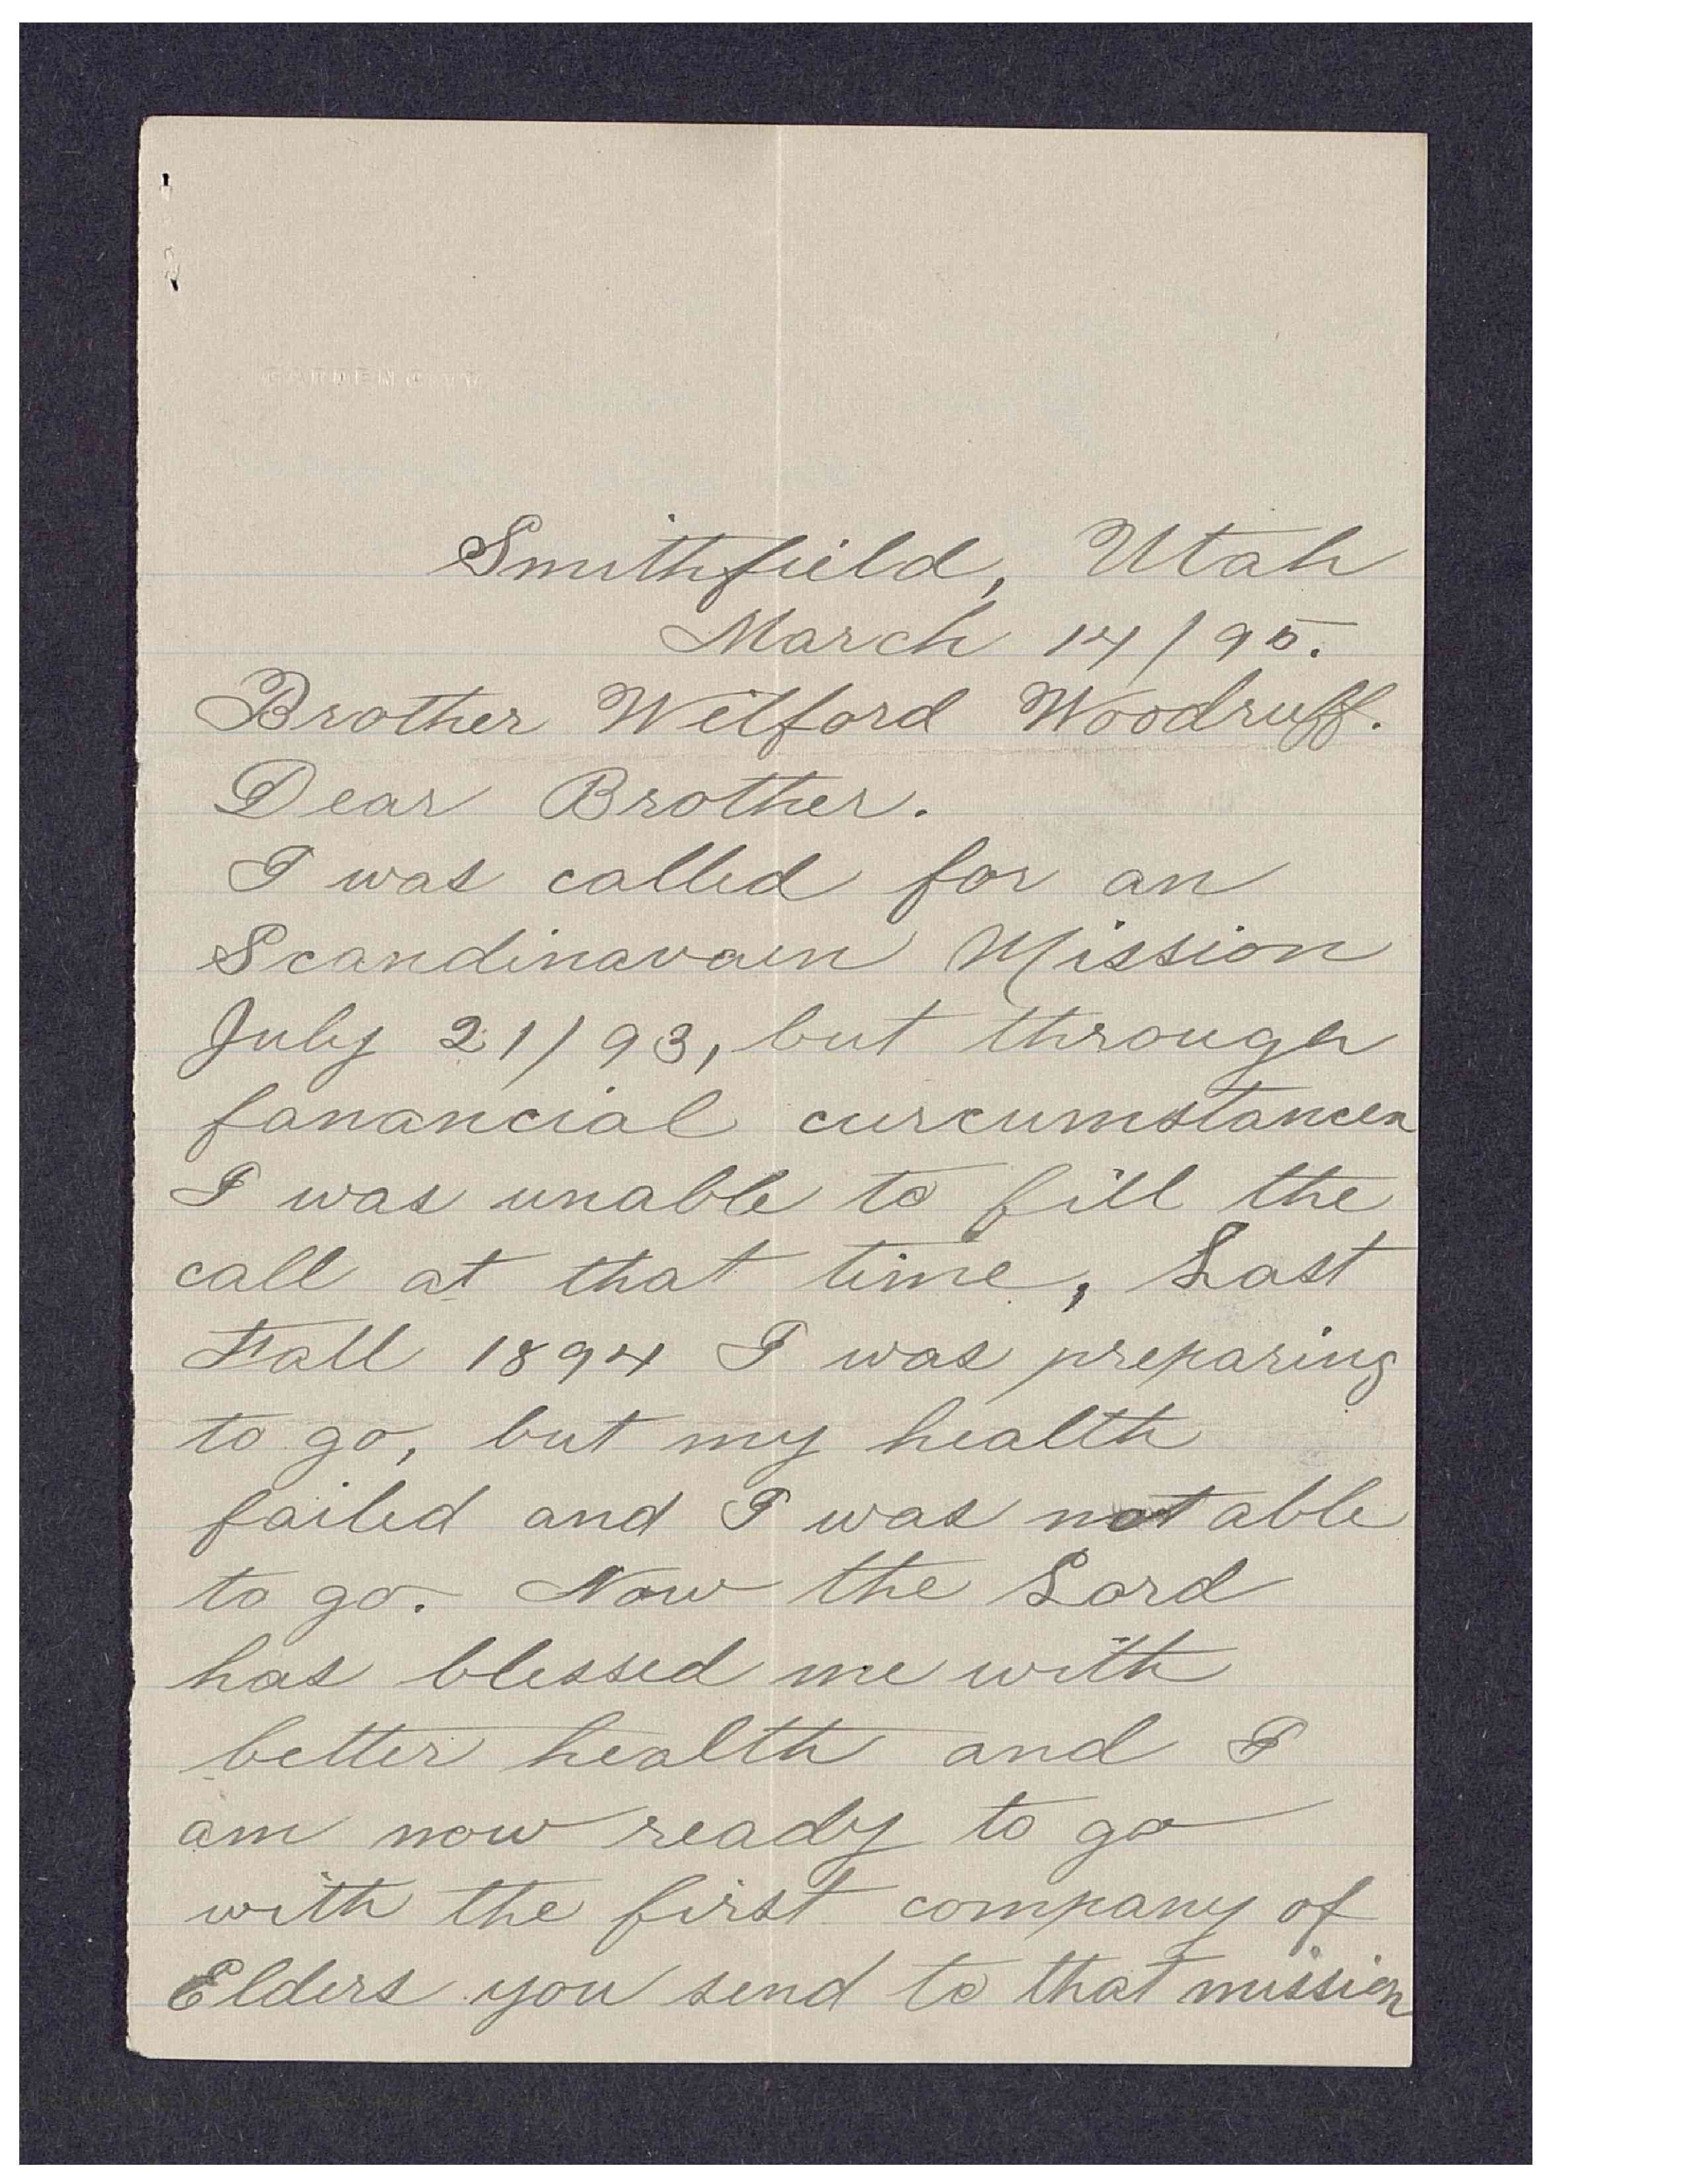 GARDEN CITY
Smithfield, Utah
March 14/95.
Brother Wilford Woodruff.
Dear Brother.
I was called for an
Scandinavain Mission
July 21/93, but through
fanancial curcumstances
I was unable to fill the
call at that time, Last
Fall 1894 I was preparing
to go, but my health
failed and I was not able
to go. Now the Lord
has blessed me with
better health and I
am now ready to go
with the first company of
Elders you send to that mission